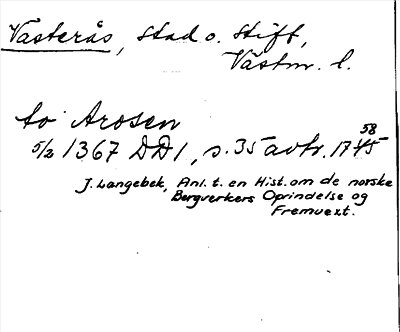 Västerås, stad o. stift,
Västm. l.
to Arosen
58
5/2 1367 DD1, s. 35 avtr. 1745
J. Langebek, Anl. t. en Hist. om de norske
Bergverkers Oprindelse og
Fremvext.